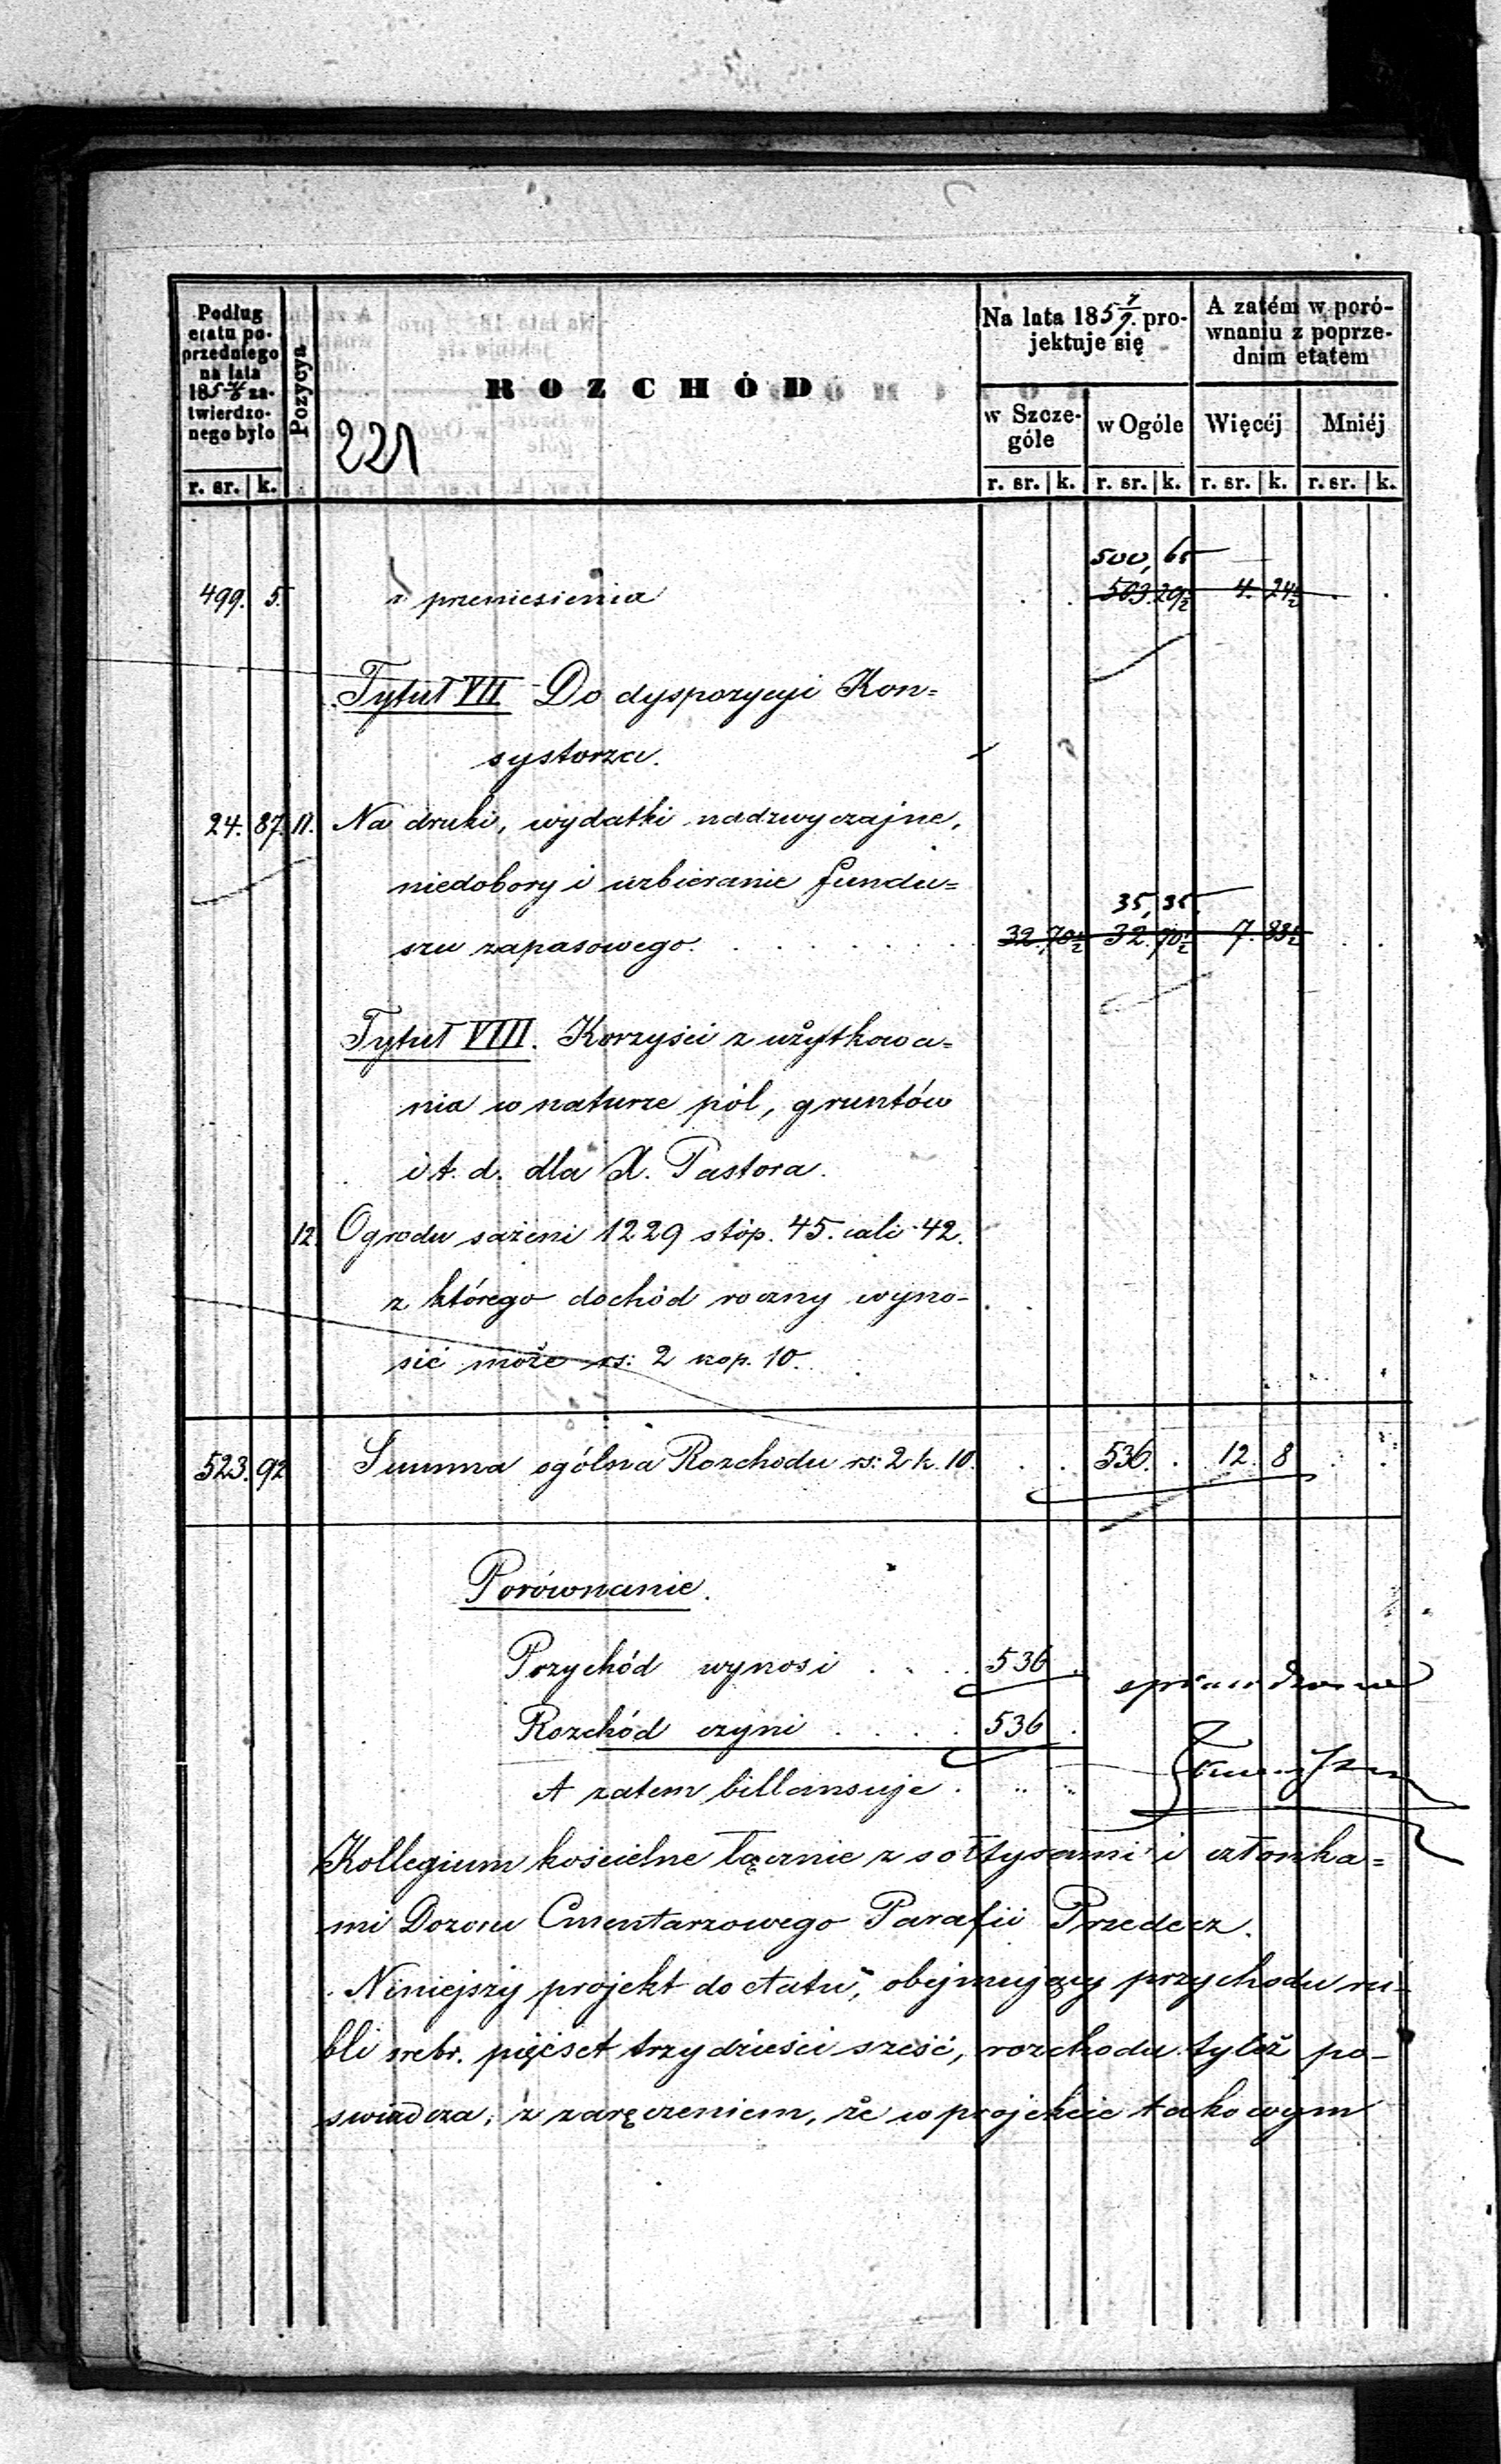 Podług
etatu po-
przedniego
na lata
185 4/6 za-
twierdzo-
nego było
Pozycya
ROZCHÓD
221
Na lata 185 7/9. pro-
jektuje się
A zatém w poró-
wnaniu z poprze-
dnim etatem
w Szcze-
góle
w Ogóle
Więcéj
Mniéj
r. sr. k. r. sr. k. r. sr. k. r. sr. k. r. sr. k.
500, 65
499. 5. z przeniesienia 503. 29½ 4. 24½
Tytuł VII Do dyspozycyi Kon=
systorza.
24. 87. 11. Na druki, wydatki nadzwyczajne,
niedobory i uzbieranie fundu=
35, 35
szu zapasowego. 32. 70½ 32. 70½ 7. 83½
Tytuł VIII. Korzyści z użytkowa=
nia w naturze pól, gruntów
i t. d. dla X. Pastora.
12. Ogrodu sażeni 1229 stóp. 45. cali 42.
z którego dochód roczny wyno-
sić może rs: 2 kop. 10.
523. 92 Summa ogólna Rozchodu rs: 2 k. 10. 536. 12. 8
Porównanie.
Przychód wynosi . . . 536
sprawdzono
Rozchód czyni . . . . 536
A zatem billansuje .
Kollegium kościelne łącznie z sołtysami i członka=
mi Dozoru Cmentarzowego Parafii Przedecz.
Niniejszy projekt do etatu, obejmujący przychodu ru-
bli srebr. pięćset trzydzieści sześć, rozchodu tyleż po-
swiadcza, z zaręczeniem, że w projekcie takowym